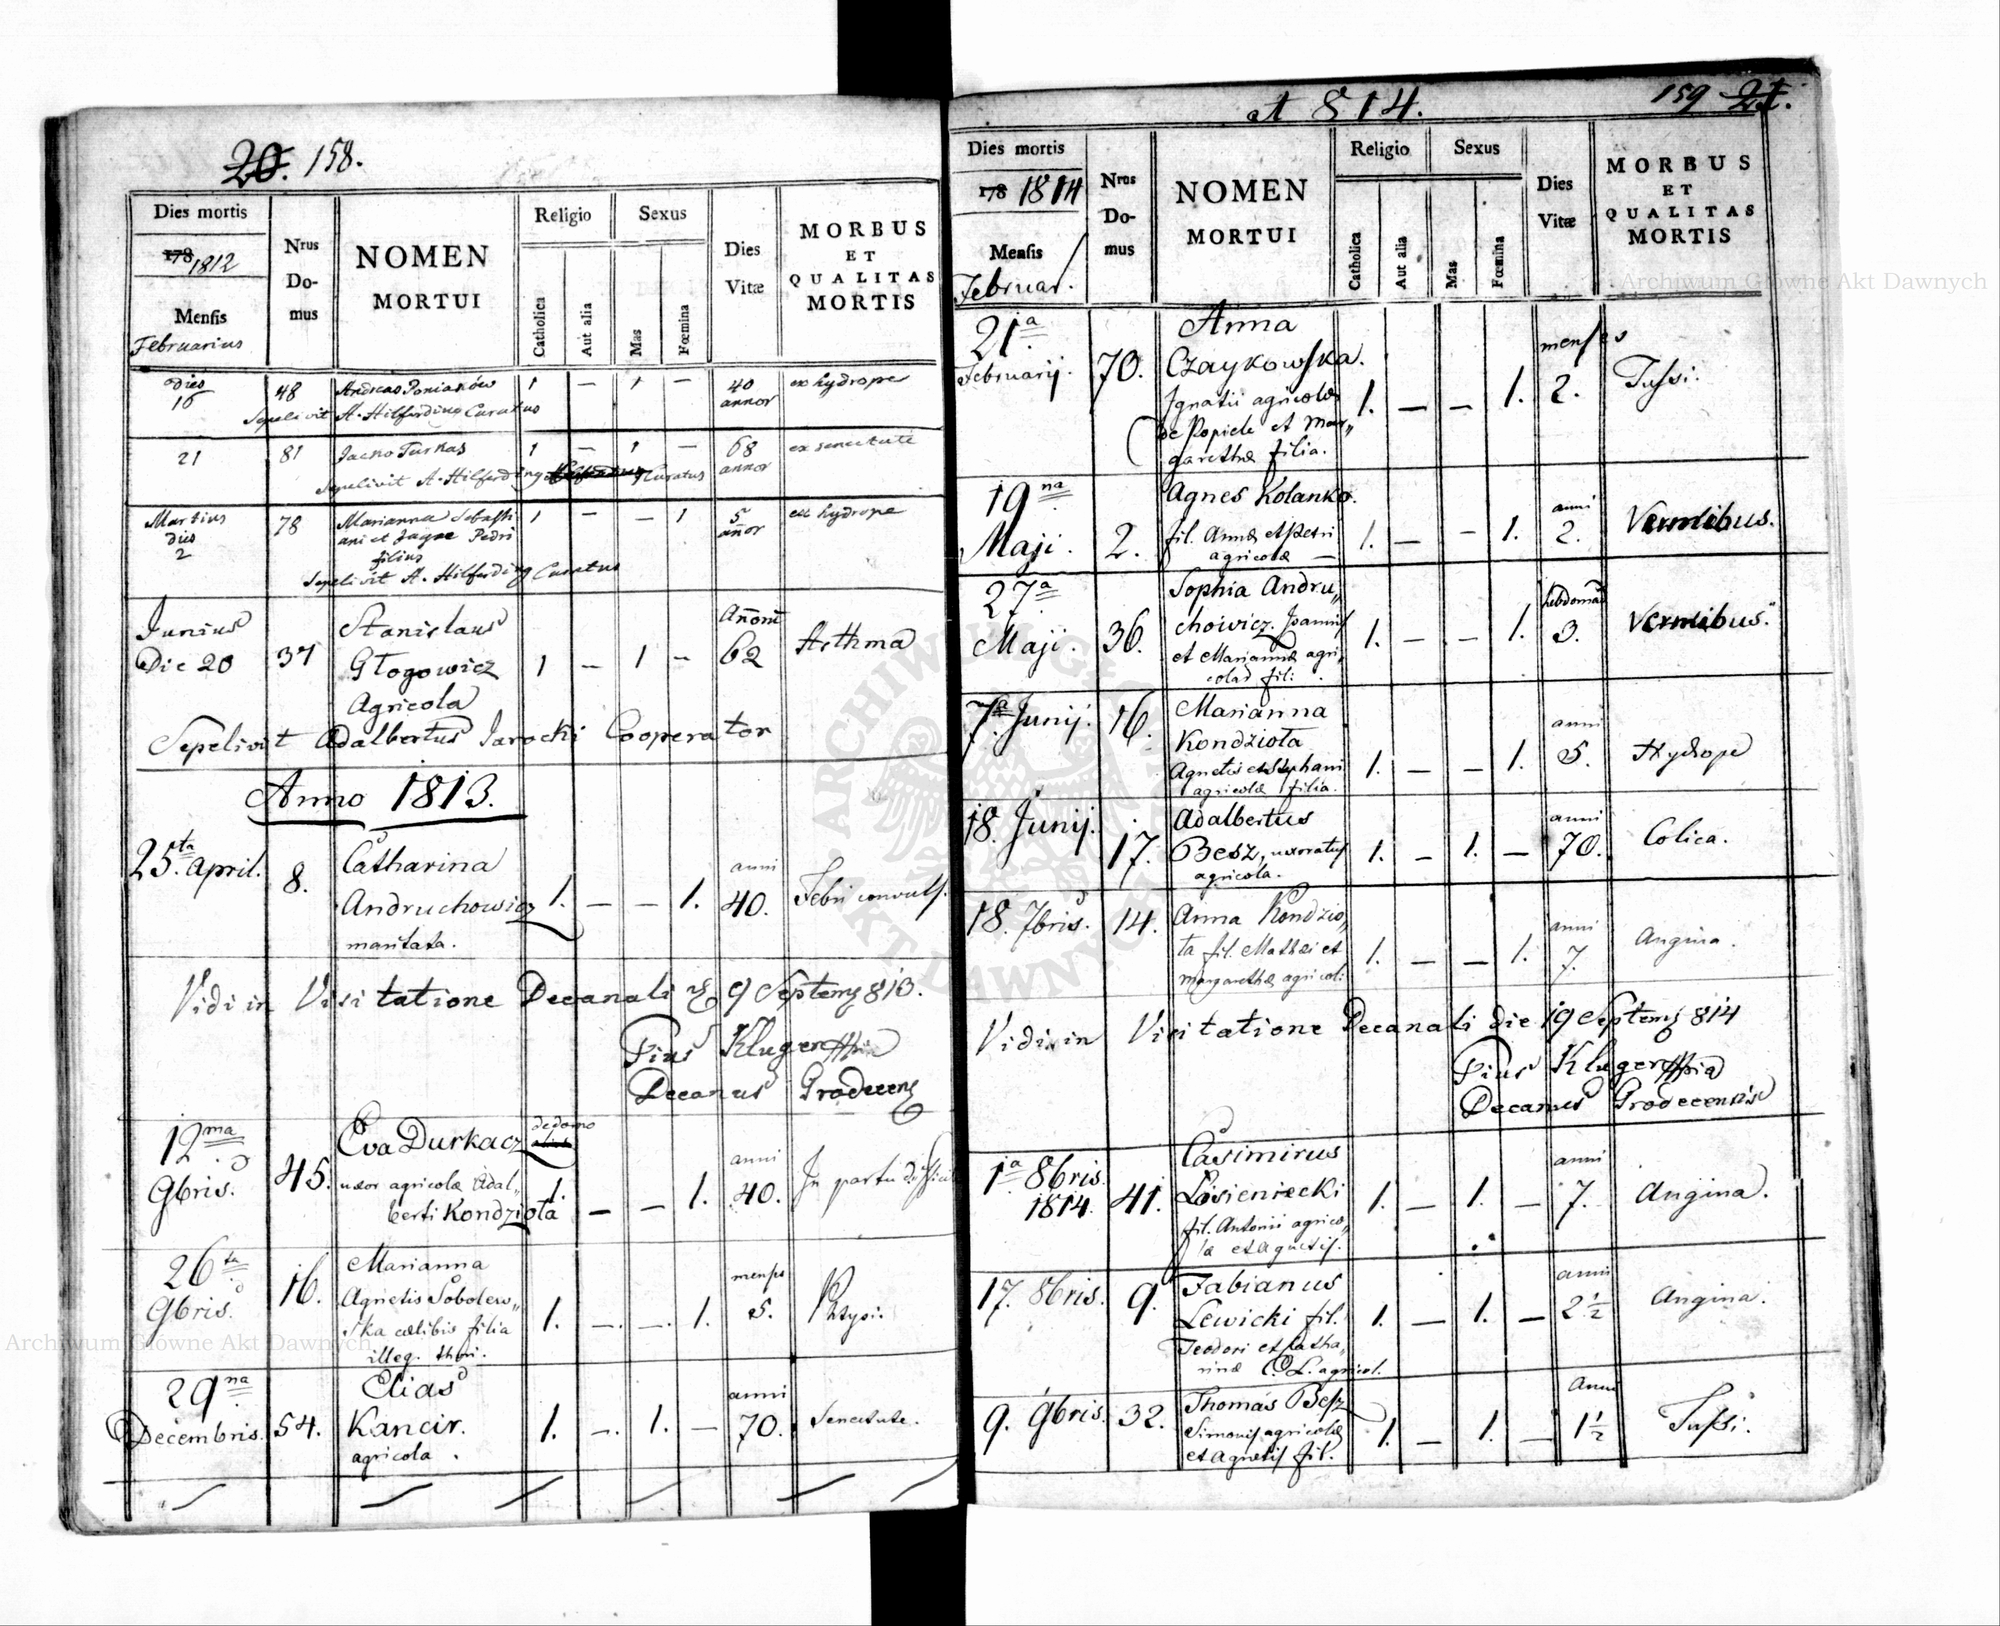 20. 158.
Dies mortis
178 1812
Mensis
Februarius
Nrus
Do-
mus
NOMEN
MORTUI
Religio
Catholica
Aut alia
Sexus
Mas
Fœmina
Dies
Vitæ
MORBUS
ET
QUALITAS
MORTIS
Dies 48 Andreas Poniaków 1 — 1 — 40 ex hydrope
16 annor
Sepelivit A. Hilferding Curatus
21 81 Jacko Turkas 1 — 1 — 68 ex senectute
annor
Sepelivit A. Hilferding Curatus
Martius 78 Marianna Sebasti 1 — — 1 5 ex hydrope
dies ani et Pedri annor
2 filius
Sepelivit A. Hilferding Curatus
Junius Stanislaus Annorum
Die 20 37 Głogowicz 1 — 1 — 62 Asthma
Agricola
Sepelivit Adalbertus Jarocki Cooperator
Anno 1813.
25ta April. 8. Catharina anni
Andruchowicz 1. — — 1. 40. Febri convuls.
maritata.
Vidi in Visitatione Decanali 9 Septemb 813.
Pius Kluger
Decanus Grodecens
12ma Eva Durkacz de domo
9bris. 45. uxor agricolæ Adal„ 1. — — 1. anni 40. In partu difficili
berti Kondziota
26ta Marianna menses
9bris. 16. Agnetis Sobolew„ 1. — — 1. 5. Phtysi.
ska cælibis filia
illeg. thori.
29na Elias anni
Decembris. 54. Kancir. 1. — 1. — 70. Senectute.
agricola.
at 814.
159 21.
Dies mortis
178 1814
Mensis
Februar.
Nros
Do-
mus
NOMEN
MORTUI
Religio
Catholica
Aut alia
Sexus
Mas
Fœmina
Dies
Vitæ
MORBUS
ET
QUALITAS
MORTIS
21a Anna menses
Februarij. 70. Czaykowska. 1. — — 1. 2. Tussi.
Ignatii agricolæ
de Popiele et Mar„
garethæ filia.
19na Agnes Kolanko. anni
Maji. 2. fil. Annæ et Petri 1. — — 1. 2. Vermibus.
agricolæ —
27a Sophia Andru„ hebdomad
Maji. 36. chowicz Joannis 1. — — 1. 3. Vermibus.
et Mariannæ agri„
colar fil:
7a Junij. 16. Marianna anni
Kondziota 1. — — 1. 5. Hydrope
Agnetis et Stephani
agricolæ filia.
18. Junij. Adalbertus anni
17. Besz, uxoratus 1. — 1. — 70. Colica.
agricola.
18. 7bris. 14. Anna Kondzio„ anni
ta fil. Mathæi et 1. — — 1. 7. Angina.
margarethæ agricol:
Vidi in Visitatione Decanali die 19 Septemb 814
Pius Kluger
Decanus Grodecensis
1a 8bris Casimirus anni
1814. 41. Lisieniecki 1. — 1. — 7. Angina.
fil. Antonii agrico„
læ et Agnetis.
17. 8bris. 9. Fabianus anni
Lewicki fil. 1. — 1. — 2½ Angina.
Teodori et Catha„
rinæ C. L. agricol.
9. 9bris. 32. Thomas Besz Anni
Simonis agricolæ 1. — 1. — 1½ Tussi.
et Agnetis fil.
Archiwum Główne Akt Dawnych
Archiwum Główne Akt Dawnych